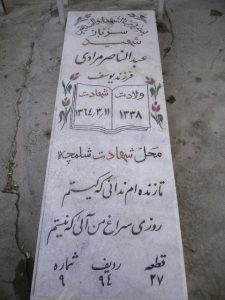 سرباز
شهید
عبدالناصر مرادی
فرزند یوسف
ولادت شهادت
۱۳۳۸ ۱۳۶۴/۳/۱۱
محل شهادت شلمچه
تا زنده ام ندانی که کیستم
روزی سراغ من آئی که نیستم
قطعه ردیف شماره
۲۷ ۹۴ ۹